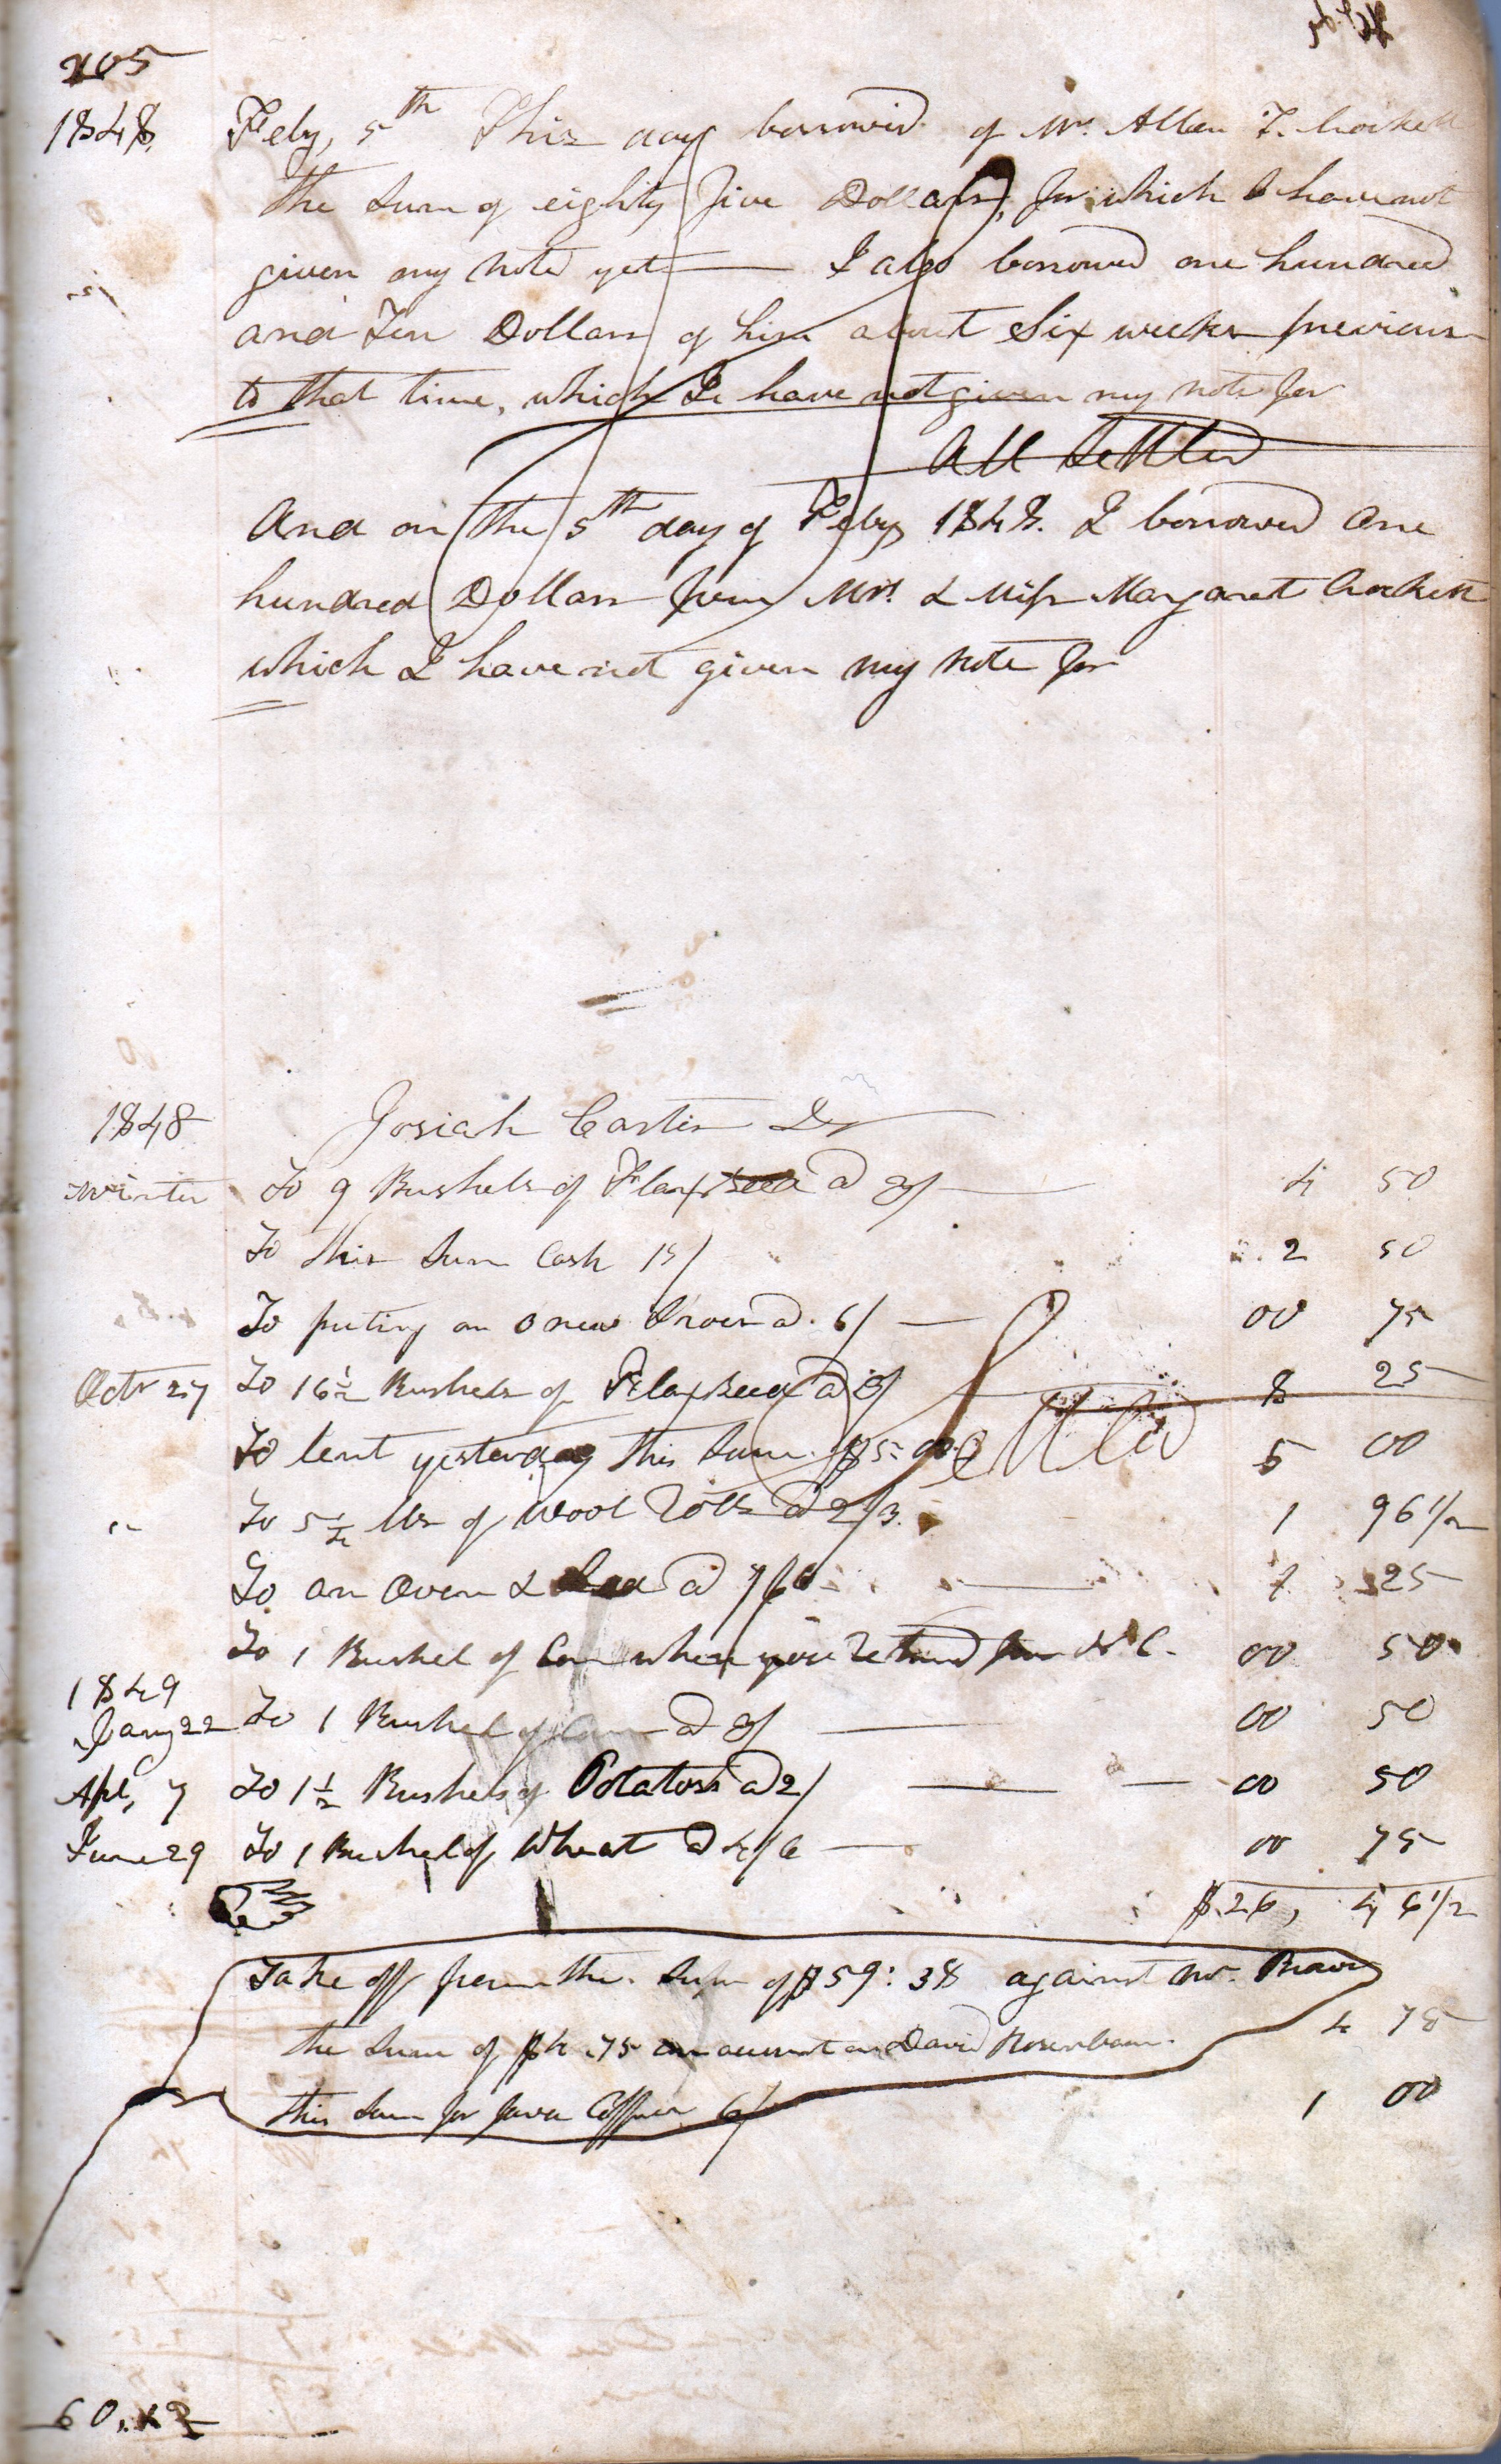 205
1848. Feby, 5th This day borrowed of Mr. Allen T. Crockett
The Sum of eighty five Dollars, for which I have not
given my note yet — I also borrowed one hundred
and Ten Dollars of him about Six weeks previous
to that time, which I have not given my note for
All Settled
And on the 5th day of Feby 1848. I borrowed One
hundred Dollars from Mrs. & Miss Margaret Crockett
which I have not given my note for
1848 Josiah Carter Dr
Winter To 9 Bushels of Flaxseed @ 3/ — 4 50
To this Sum Cash 15/ 2 50
To puting on 3 new Shoes @ 6/ — 00 75
Octr 27 To 16 1/2 Bushels of Flaxseed @ 3/ 8 25
To lent yesterday this Sum $5-00 5 00
Settled
" To 5 1/4 lbs of Wool Rolls @ 2/3. 1 96 1/2
To an Oven & Led @ 7/6 — 1 25
To 1 Bushel of Corn when you returnd from N C. 00 50
1849
Jany 22 To 1 Bushel of Corn @ 3/ — 00 50
Apl, 7 To 1 1/2 Bushels of Potatoes @ 2/ — 00 50
June 29 To 1 Bushel of Wheat @ 4/6 — 00 75
$26, 46 1/2
Take off from the Sum of $59:38 against Mr.
the Sum of $4.75 on account on David Rosenbaum. 4 75
this Sum for Java Coffee 6/ 1 00